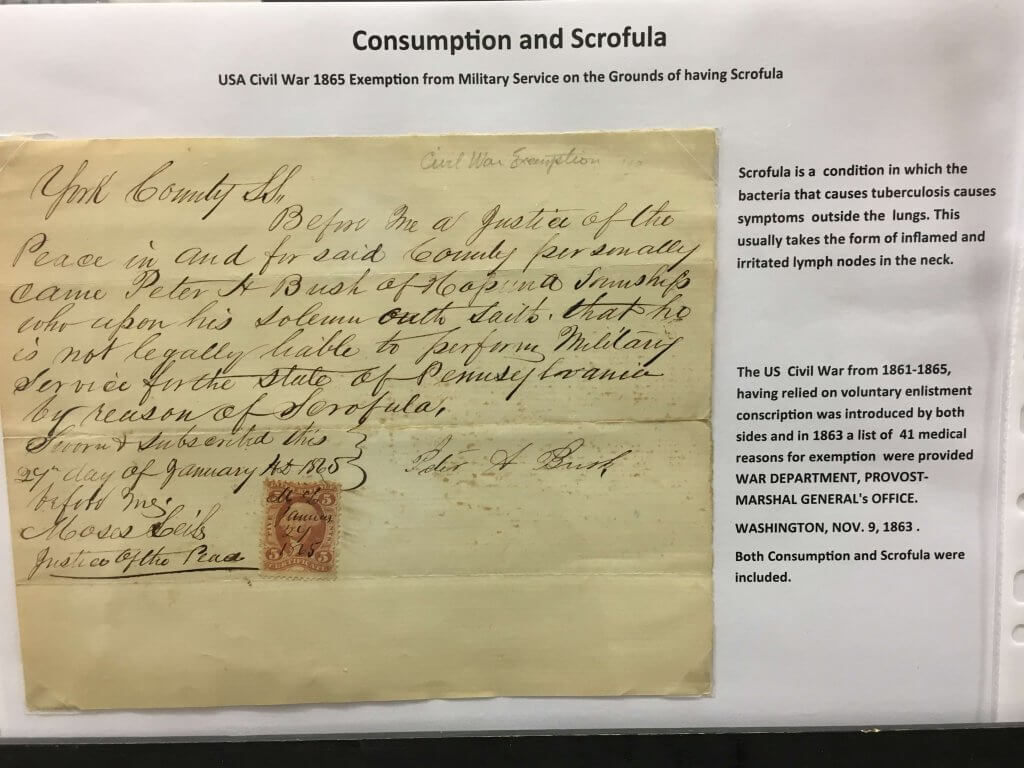 Consumption and Scrofula
USA Civil War 1865 Exemption from Military Service on the Grounds of having Scrofula
Civil War Exemption
York County SS,,
Before Me a Justice of the
Peace in and for said County personally
came Peter A Bush of Township
who upon his solemn outh saith. that he
is not legally liable to perform Military
Service for the state of Pennsylvania
by reason of Scrofula,
Sworn & Subscribed this
27th day of January AD 1865
before me;
Peter A Bush
Moses
Justice Of the Peace
5 5
27
1865
5 5
CERTIFICATE
Scrofula is a condition in which the
bacteria that causes tuberculosis causes
symptoms outside the lungs. This
usually takes the form of inflamed and
irritated lymph nodes in the neck.
The US Civil War from 1861-1865,
having relied on voluntary enlistment
conscription was introduced by both
sides and in 1863 a list of 41 medical
reasons for exemption were provided
WAR DEPARTMENT, PROVOST-
MARSHAL GENERAL's OFFICE.
WASHINGTON, NOV. 9, 1863 .
Both Consumption and Scrofula were
included.